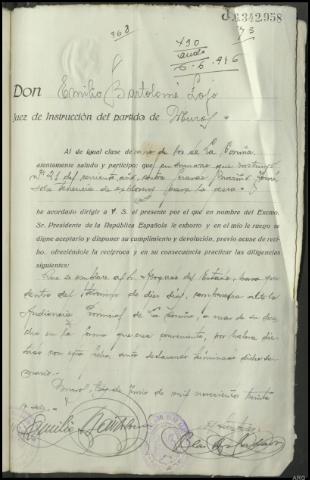 C.1.342,958
368
490
73
6-6-916
Don Emilio Bartolomé
Juez de Instrucción del partido de Muros
Al de igual clase de de La Coruña
atentamente saludo y participo: que en sumario que instruyo
nº 21 del corriente año, sobre
tenencia de explosivos para la pesca
he acordado dirigir a V. S. el presente por el que en nombre del Excmo.
Sr. Presidente de la República Española le exhorto y en el mío le ruego se
digne aceptarlo y disponer su cumplimiento y devolución, previo acuse de reci-
bo, ofreciéndole la recíproca y en su consecuencia practicar las diligencias
siguientes:
Que se emplace al Sr. Abogado del Estado, para que
dentro del término de diez días, comparezca ante la
Audiencia Provincial de La Coruña, a usar de su dere-
cho en la forma que crea conveniente, por haberse dic-
tado con esta fecha, auto declarando terminado dicho su-
mario.
Muros, de Junio de mil novecientos treinta
y seis.
Emilio Bartolomé